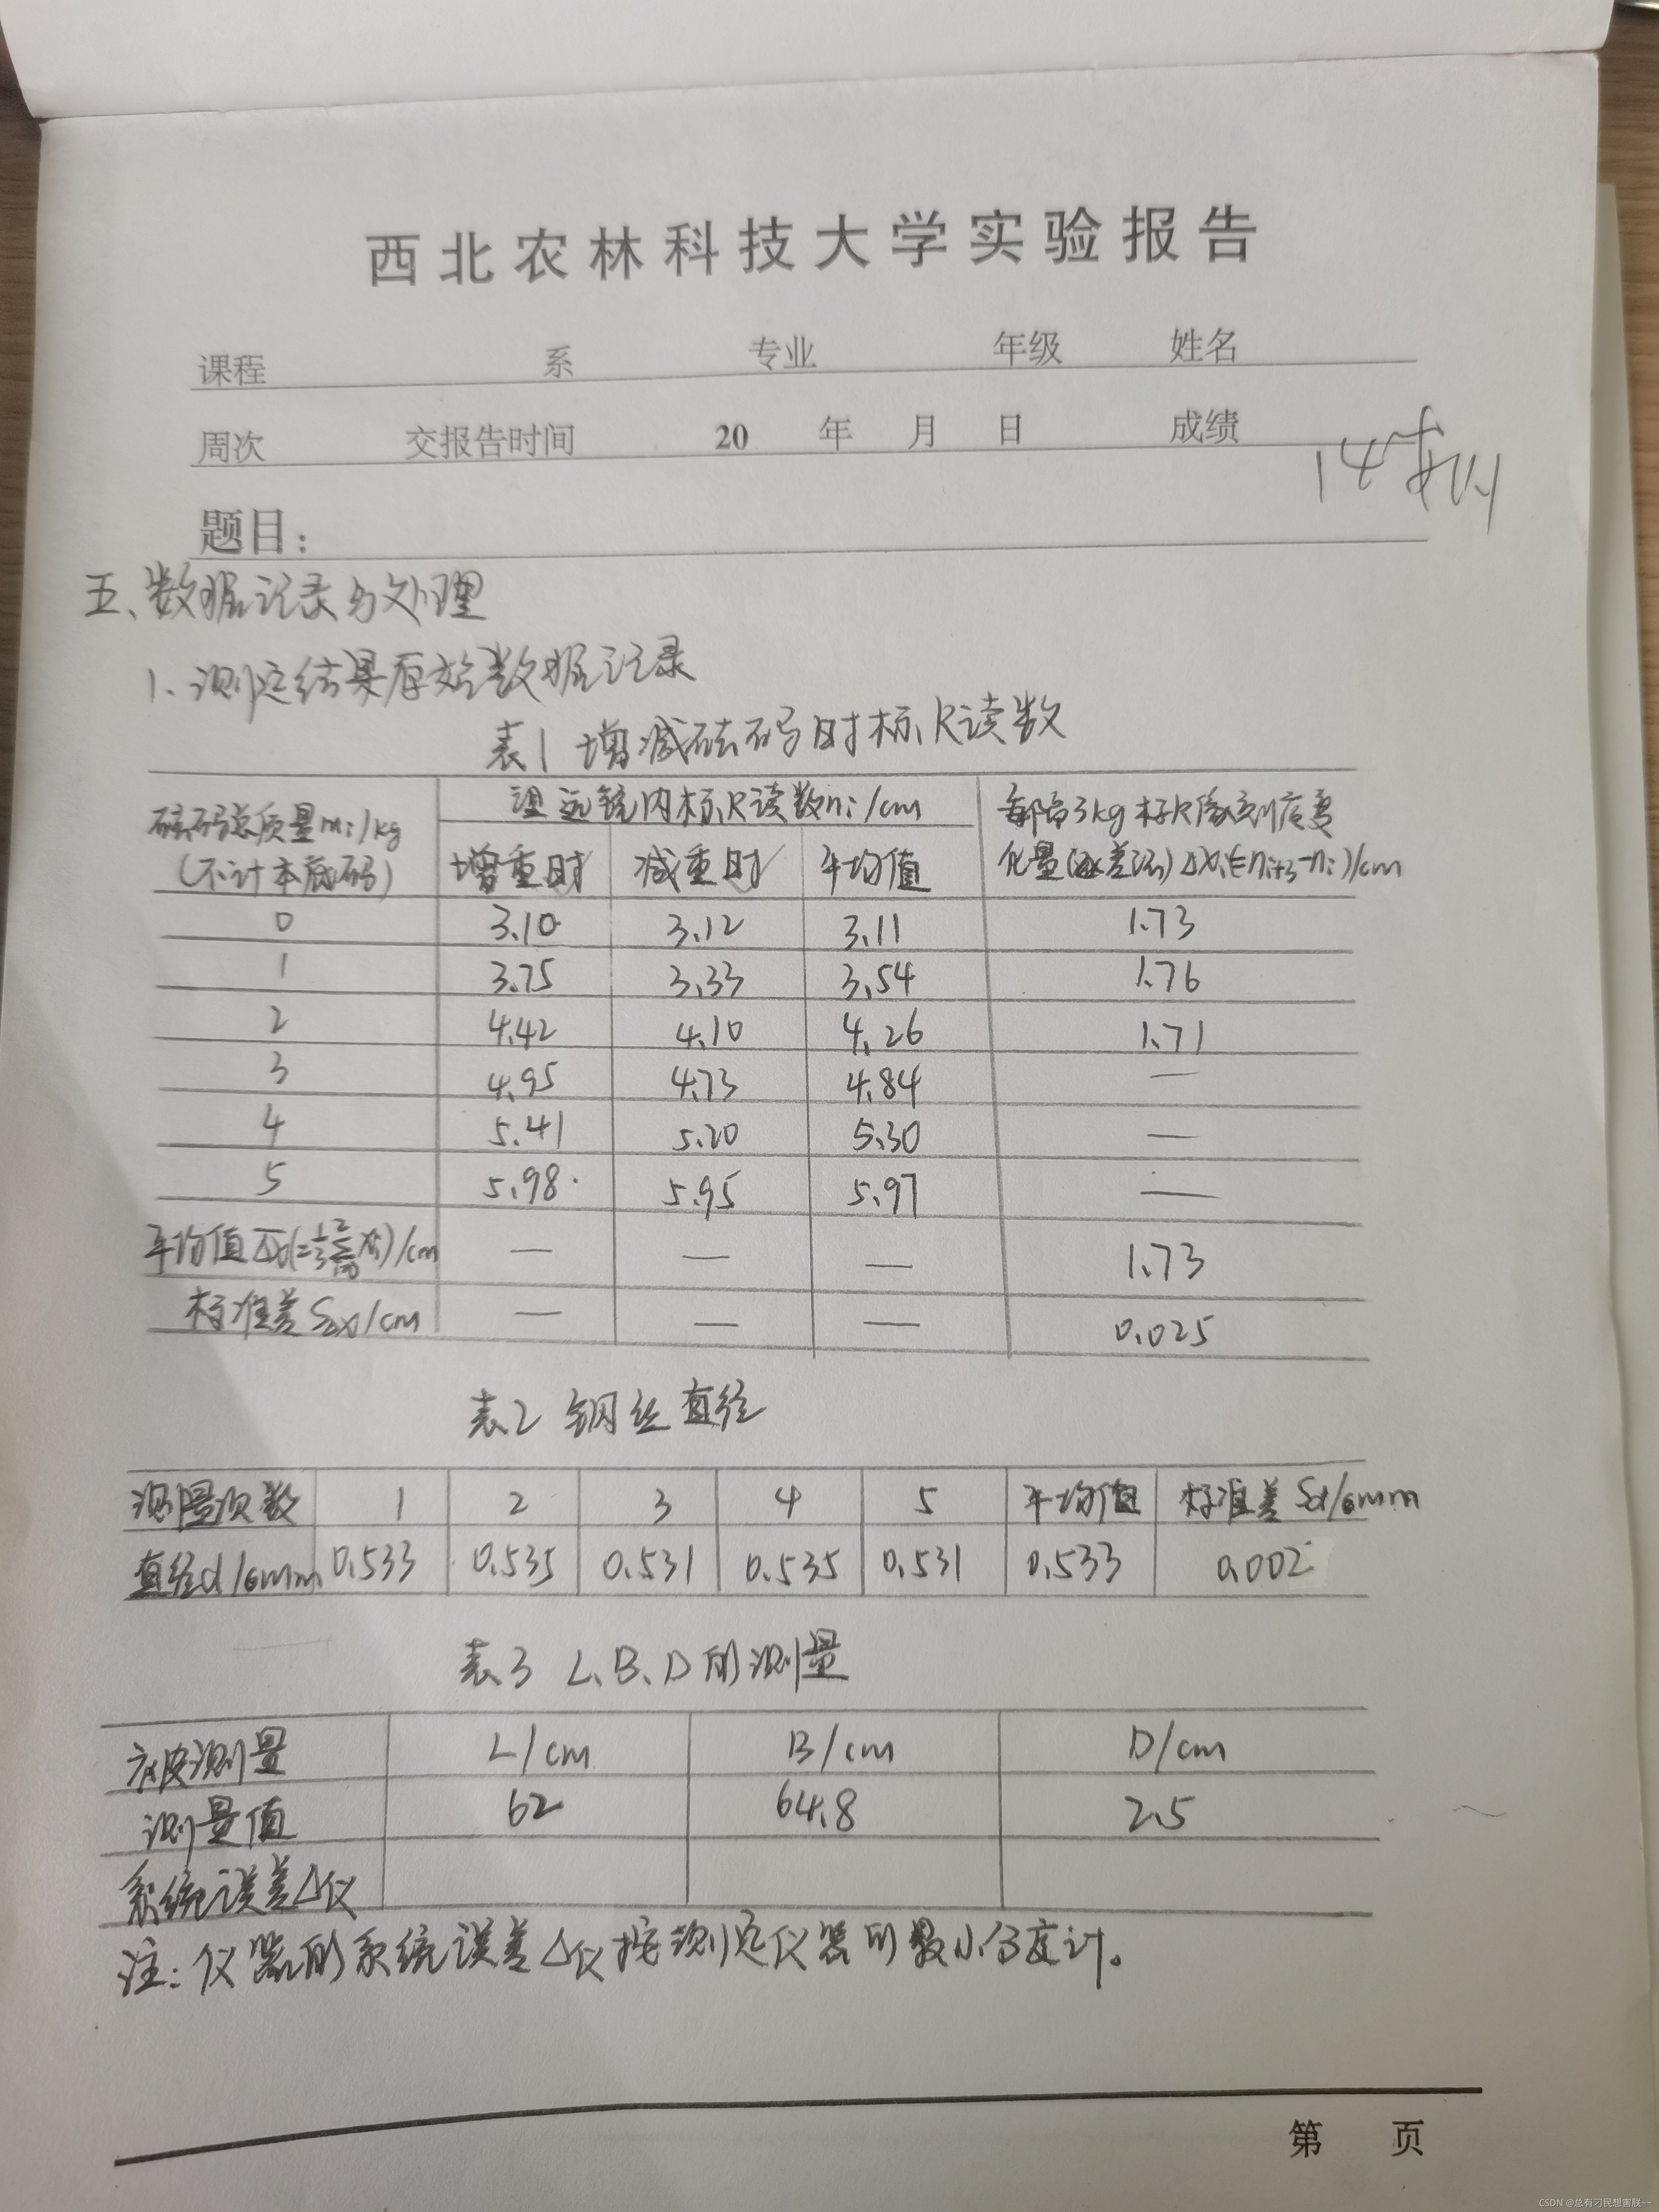 西北农林科技大学实验报告
课程 系 专业 年级 姓名
周次 交报告时间 20 年 月 日 成绩
14
题目：
五、数据记录与处理
1、测定结果原始数据记录
表1 增减砝码时标尺读数
砝码总质量mi/kg (不计本底码) 望远镜内标尺读数ni/cm 每隔3kg标尺像刻度变化量(逐差法)ΔXi(=ni+3-ni)/cm
增重时 减重时 平均值
0 3.10 3.12 3.11 1.73
1 3.75 3.33 3.54 1.76
2 4.42 4.10 4.26 1.71
3 4.95 4.73 4.84 —
4 5.41 5.20 5.30 —
5 5.98 5.95 5.97 —
平均值 /cm — — — 1.73
标准差SΔx/cm — — — 0.025
表2 钢丝直径
测量次数 1 2 3 4 5 平均值 标准差Sd/mm
直径d/mm 0.533 0.535 0.531 0.535 0.531 0.533 0.002
表3 L、B、D的测量
被测量 L/cm B/cm D/cm
测量值 62 64.8 2.5
系统误差Δ仪
注：仪器的系统误差Δ仪按测定仪器的最小分度计。
第 页
CSDN @总有刁民想害朕一